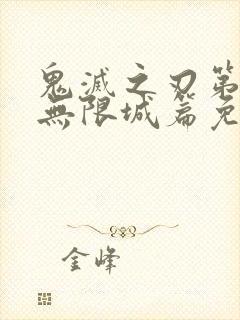 鬼滅之刃第
無限城篇免
金峰